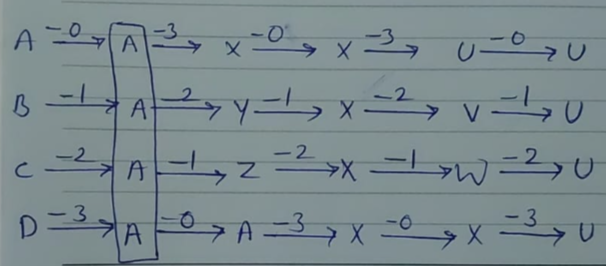 A -0→ A -3→ X -0→ X -3→ U -0→ U
B -1→ A -2→ Y -1→ X -2→ V -1→ U
C -2→ A -1→ Z -2→ X -1→ W -2→ U
D -3→ A -0→ A -3→ X -0→ X -3→ U